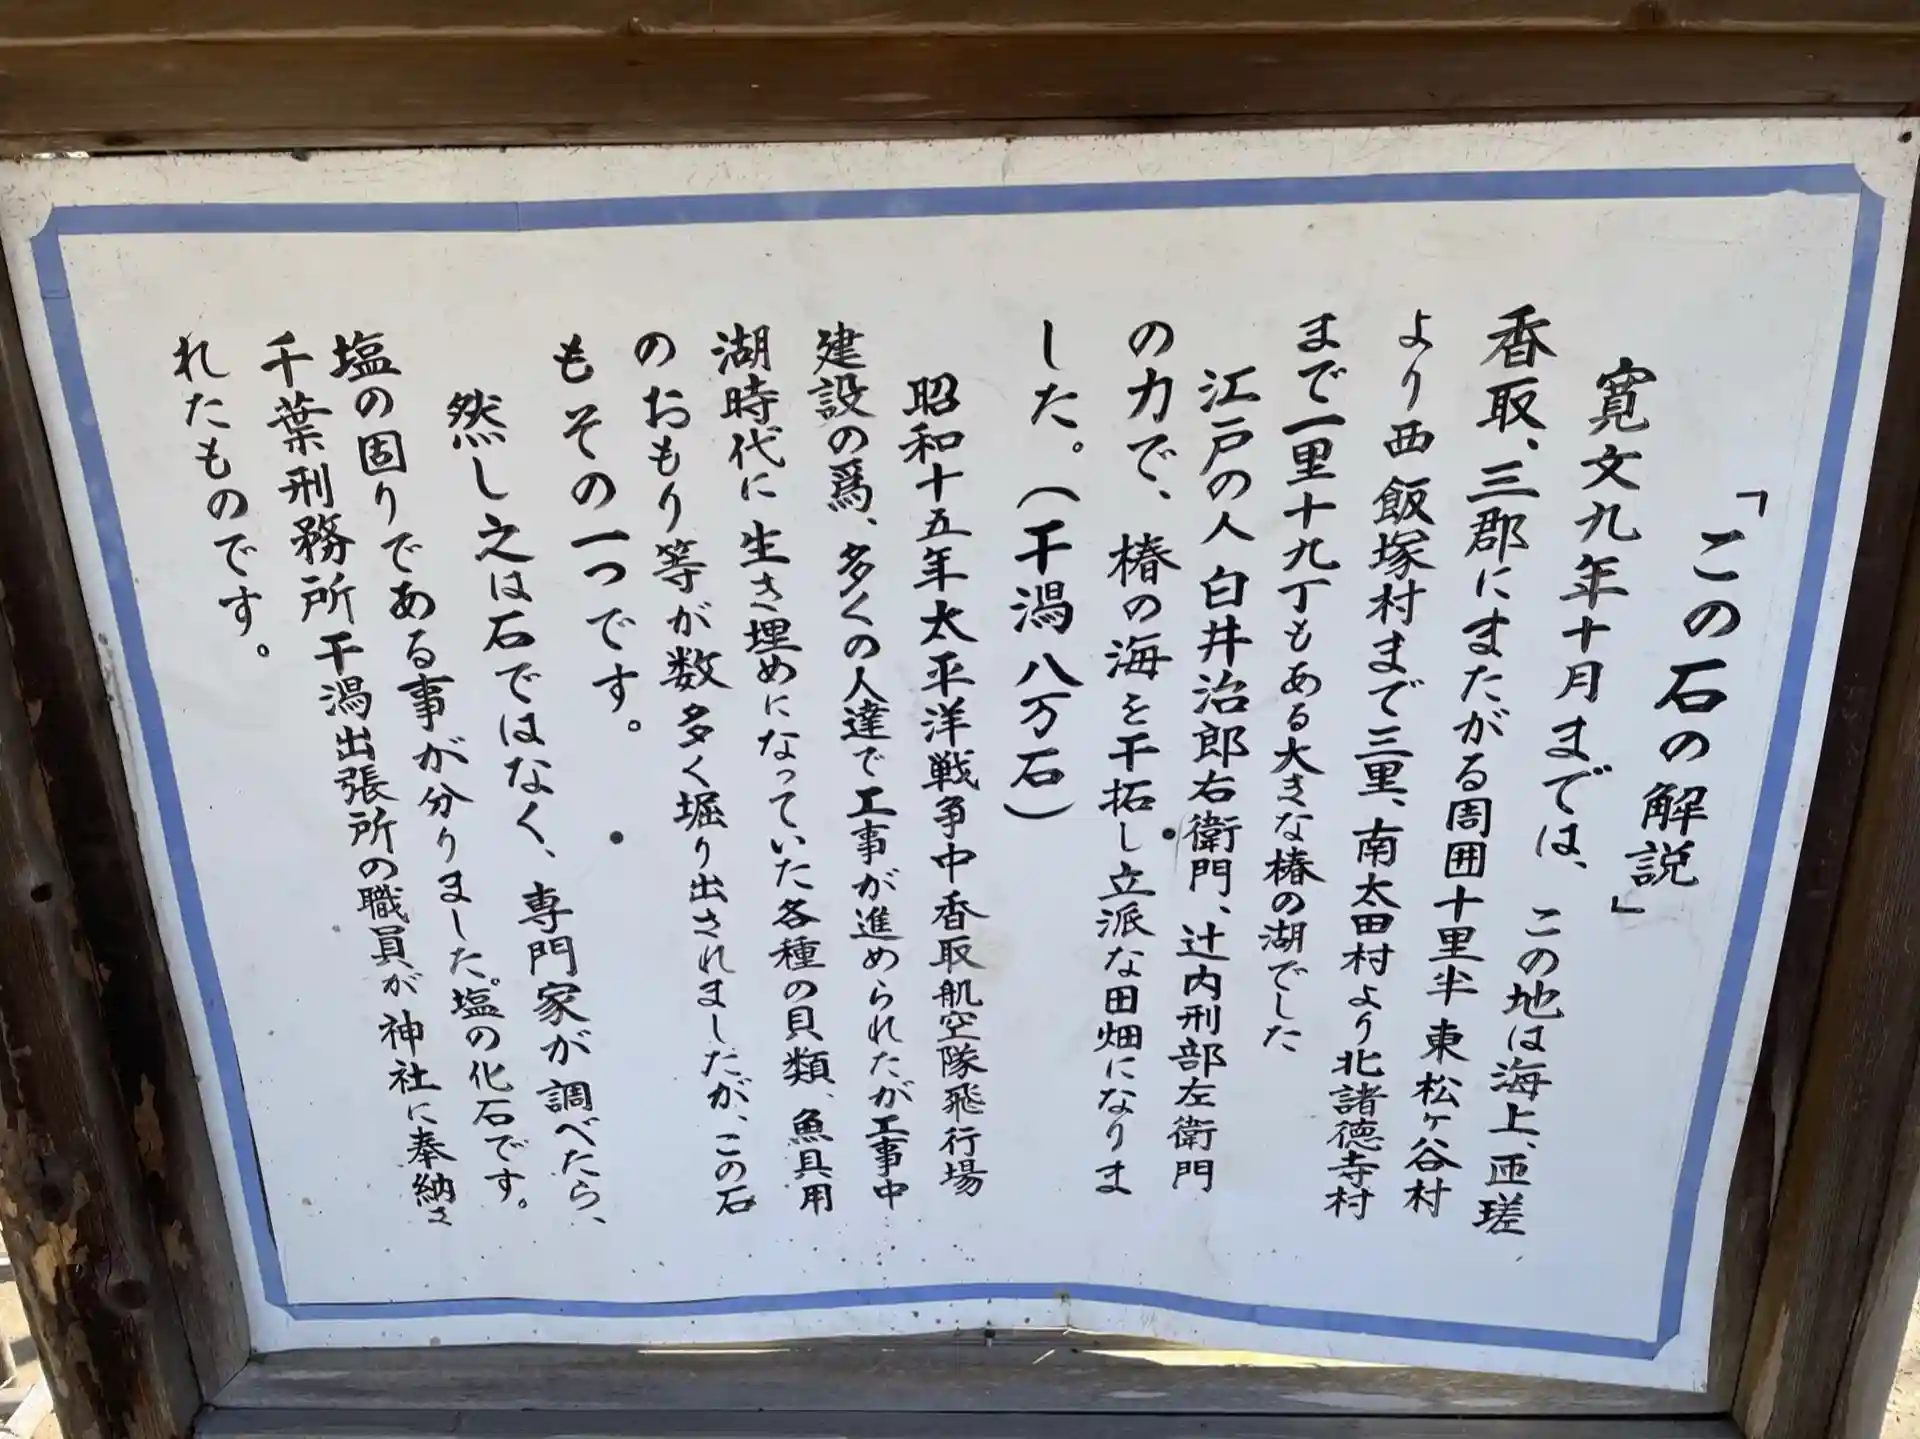 「この石の解説」
寛文九年十月までは、この地は海上、匝瑳
香取、三郡にまたがる周囲十里半 東松ヶ谷村
より西 飯塚村まで三里、南太田村より北諸徳寺村
まで一里十九丁もある大きな椿の湖でした
江戸の人 白井治郎右衛門、辻内刑部左衛門
の力で、椿の海を干拓し立派な田畑になりま
した。(干潟八万石)
昭和十五年太平洋戦争中香取航空隊飛行場
建設の爲、多くの人達で工事が進められたが工事中
湖時代に生き埋めになっていた各種の貝類、魚具用
のおもり等が数多く堀り出されましたが、この石
もその一つです。
然し之は石ではなく、専門家が調べたら、
塩の固りである事が分りました。塩の化石です。
千葉刑務所干潟出張所の職員が神社に奉納さ
れたものです。